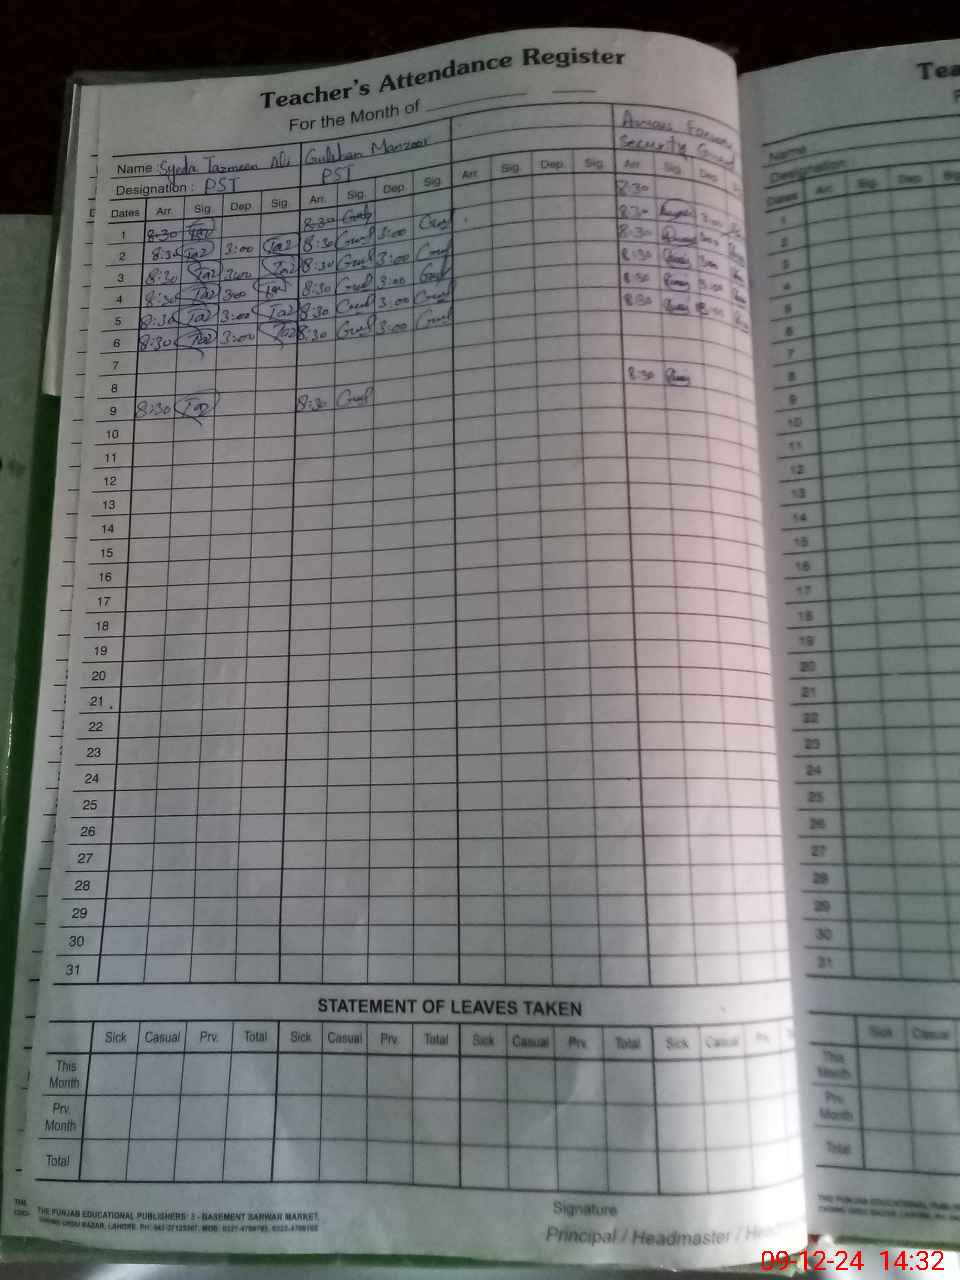 Teacher's Attendance Register
For the Month of
Name : Syeda Tazmeen Ali Gulshan Manzoor
Security Guard
Designation : PST PST
Dates Arr. Sig. Dep. Sig. Arr. Sig. Dep. Sig. Arr. Sig. Dep. Sig. Arr. Sig. Dep.
1 8:30 Taz 8:30 Gul 8:30
2 8:30 Taz 3:00 Taz 8:30 Gul 3:00 Gul 8:30 3:00
3 8:30 Taz 3:00 Taz 8:30 Gul 3:00 Gul 8:30 3:00
4 8:30 Taz 3:00 Taz 8:30 Gul 3:00 Gul 8:30 3:00
5 8:30 Taz 3:00 Taz 8:30 Gul 3:00 Gul 8:30 3:00
6 8:30 Taz 3:00 Taz 8:30 Gul 3:00 Gul 8:30 3:00
7
8
9 8:30 Taz 8:30 Gul 8:30
10
11
12
13
14
15
16
17
18
19
20
21
22
23
24
25
26
27
28
29
30
31
STATEMENT OF LEAVES TAKEN
Sick Casual Prv. Total Sick Casual Prv. Total Sick Casual Prv. Total Sick Casual Prv.
This
Month
Prv.
Month
Total
Signature
Principal / Headmaster /
THE PUNJAB EDUCATIONAL PUBLISHERS: 3 - BASEMENT SARWAR MARKET,
URDU BAZAR, LAHORE.
Name
Designation
Dates Arr. Sig.
1
2
3
4
5
6
7
8
9
10
11
12
13
14
15
16
17
18
19
20
21
22
23
24
25
26
27
28
29
30
31
Sick Casual
This
Month
Prv.
Month
Total
09-12-24 14:32